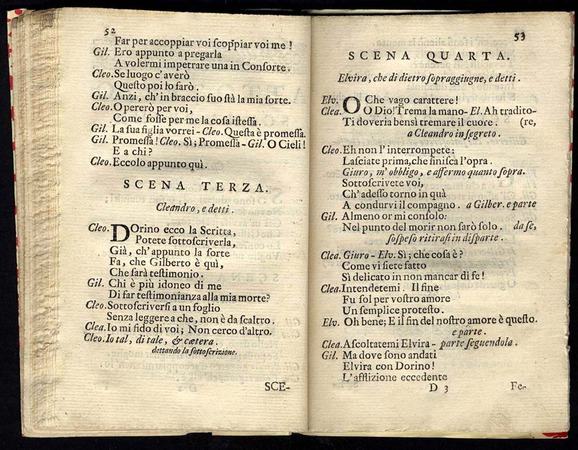 52
Far per accoppiar voi scoppiar voi me !
Gil. Ero appunto a pregarla
A volermi impetrare una in Consorte.
Cleo. Se luogo c'averò
Questo poi lo sarò.
Gil. Anzi, ch'in braccio suo stà la mia sorte.
Cleo. O pererò per voi,
Come fosse per me la cosa istessa.
Gil. La sua figlia vorrei - Cleo. Questa è promessa.
Gil. Promessa! Cleo. Sì; Promessa - Gil. O Cieli !
E a chi?
Cleo. Eccolo appunto quì.
SCENA TERZA.
Cleandro, e detti.
Cleo. Dorino ecco la Scritta,
Potete sottoscriverla,
Già, ch'appunto la sorte
Fa, che Gilberto è quì,
Che sarà testimonio.
Gil. Chi è più idoneo di me
Di far testimonianza alla mia morte?
Cleo. Sottoscriversi a un foglio
Senza leggere a che, non è da scaltro.
Clea. Io mi fido di voi; Non cerco d'altro.
Cleo. Io tal, di tale, & cætera.
dettando la sottoscrizione.
SCE-
53
SCENA QUARTA.
Elvira, che di dietro sopraggiugne, e detti.
Elv. O Che vago carattere!
Clea. O Dio! Trema la mano- El. Ah tradito-
Ti doveria bensì tremare il cuore · (re,
a Cleandro in segreto.
Cleo. Eh non l'interrompete;
Lasciate prima, che finisca l'opra.
Giuro, m'obbligo, e affermo quanto sopra.
Sottoscrivete voi,
Ch'adesso torno in quà
A condurvi il compagno. a Gilber. e parte
Gil. Almeno or mi consolo:
Nel punto del morir non sarò solo. da se,
sospeso ritirasi in disparte.
Clea. Giuro - Elv. Sì; che cosa è?
Come vi siete fatto
Sì delicato in non mancar di fe!
Clea. Intendetemi. Il fine
Fu sol per vostro amore
Un semplice protesto.
Elv. Oh bene; E il fin del nostro amore è questo.
e parte.
Clea. Ascoltatemi Elvira - parte seguendola.
Gil. Ma dove sono andati
Elvira con Dorino!
L'afflizione eccedente
D 3 Fe-